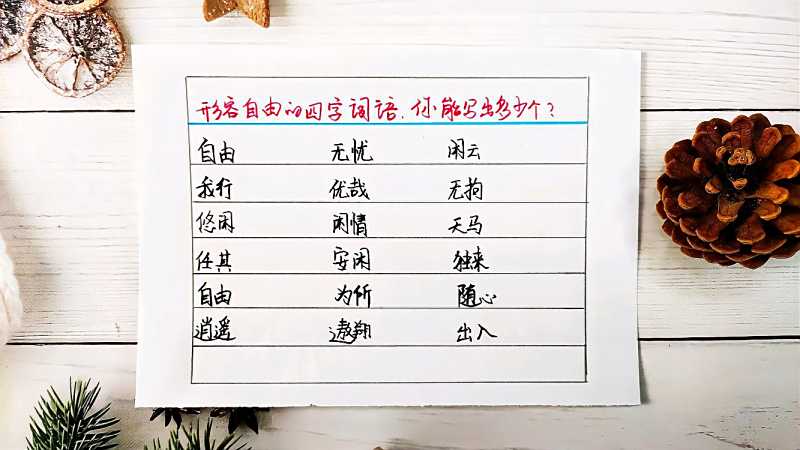 形容自由的四字词语,你能写出多少个?
自由 无忧 闲云
我行 优哉 无拘
悠闲 闲情 天马
任其 安闲 独来
自由 为所 随心
逍遥 遨翔 出入